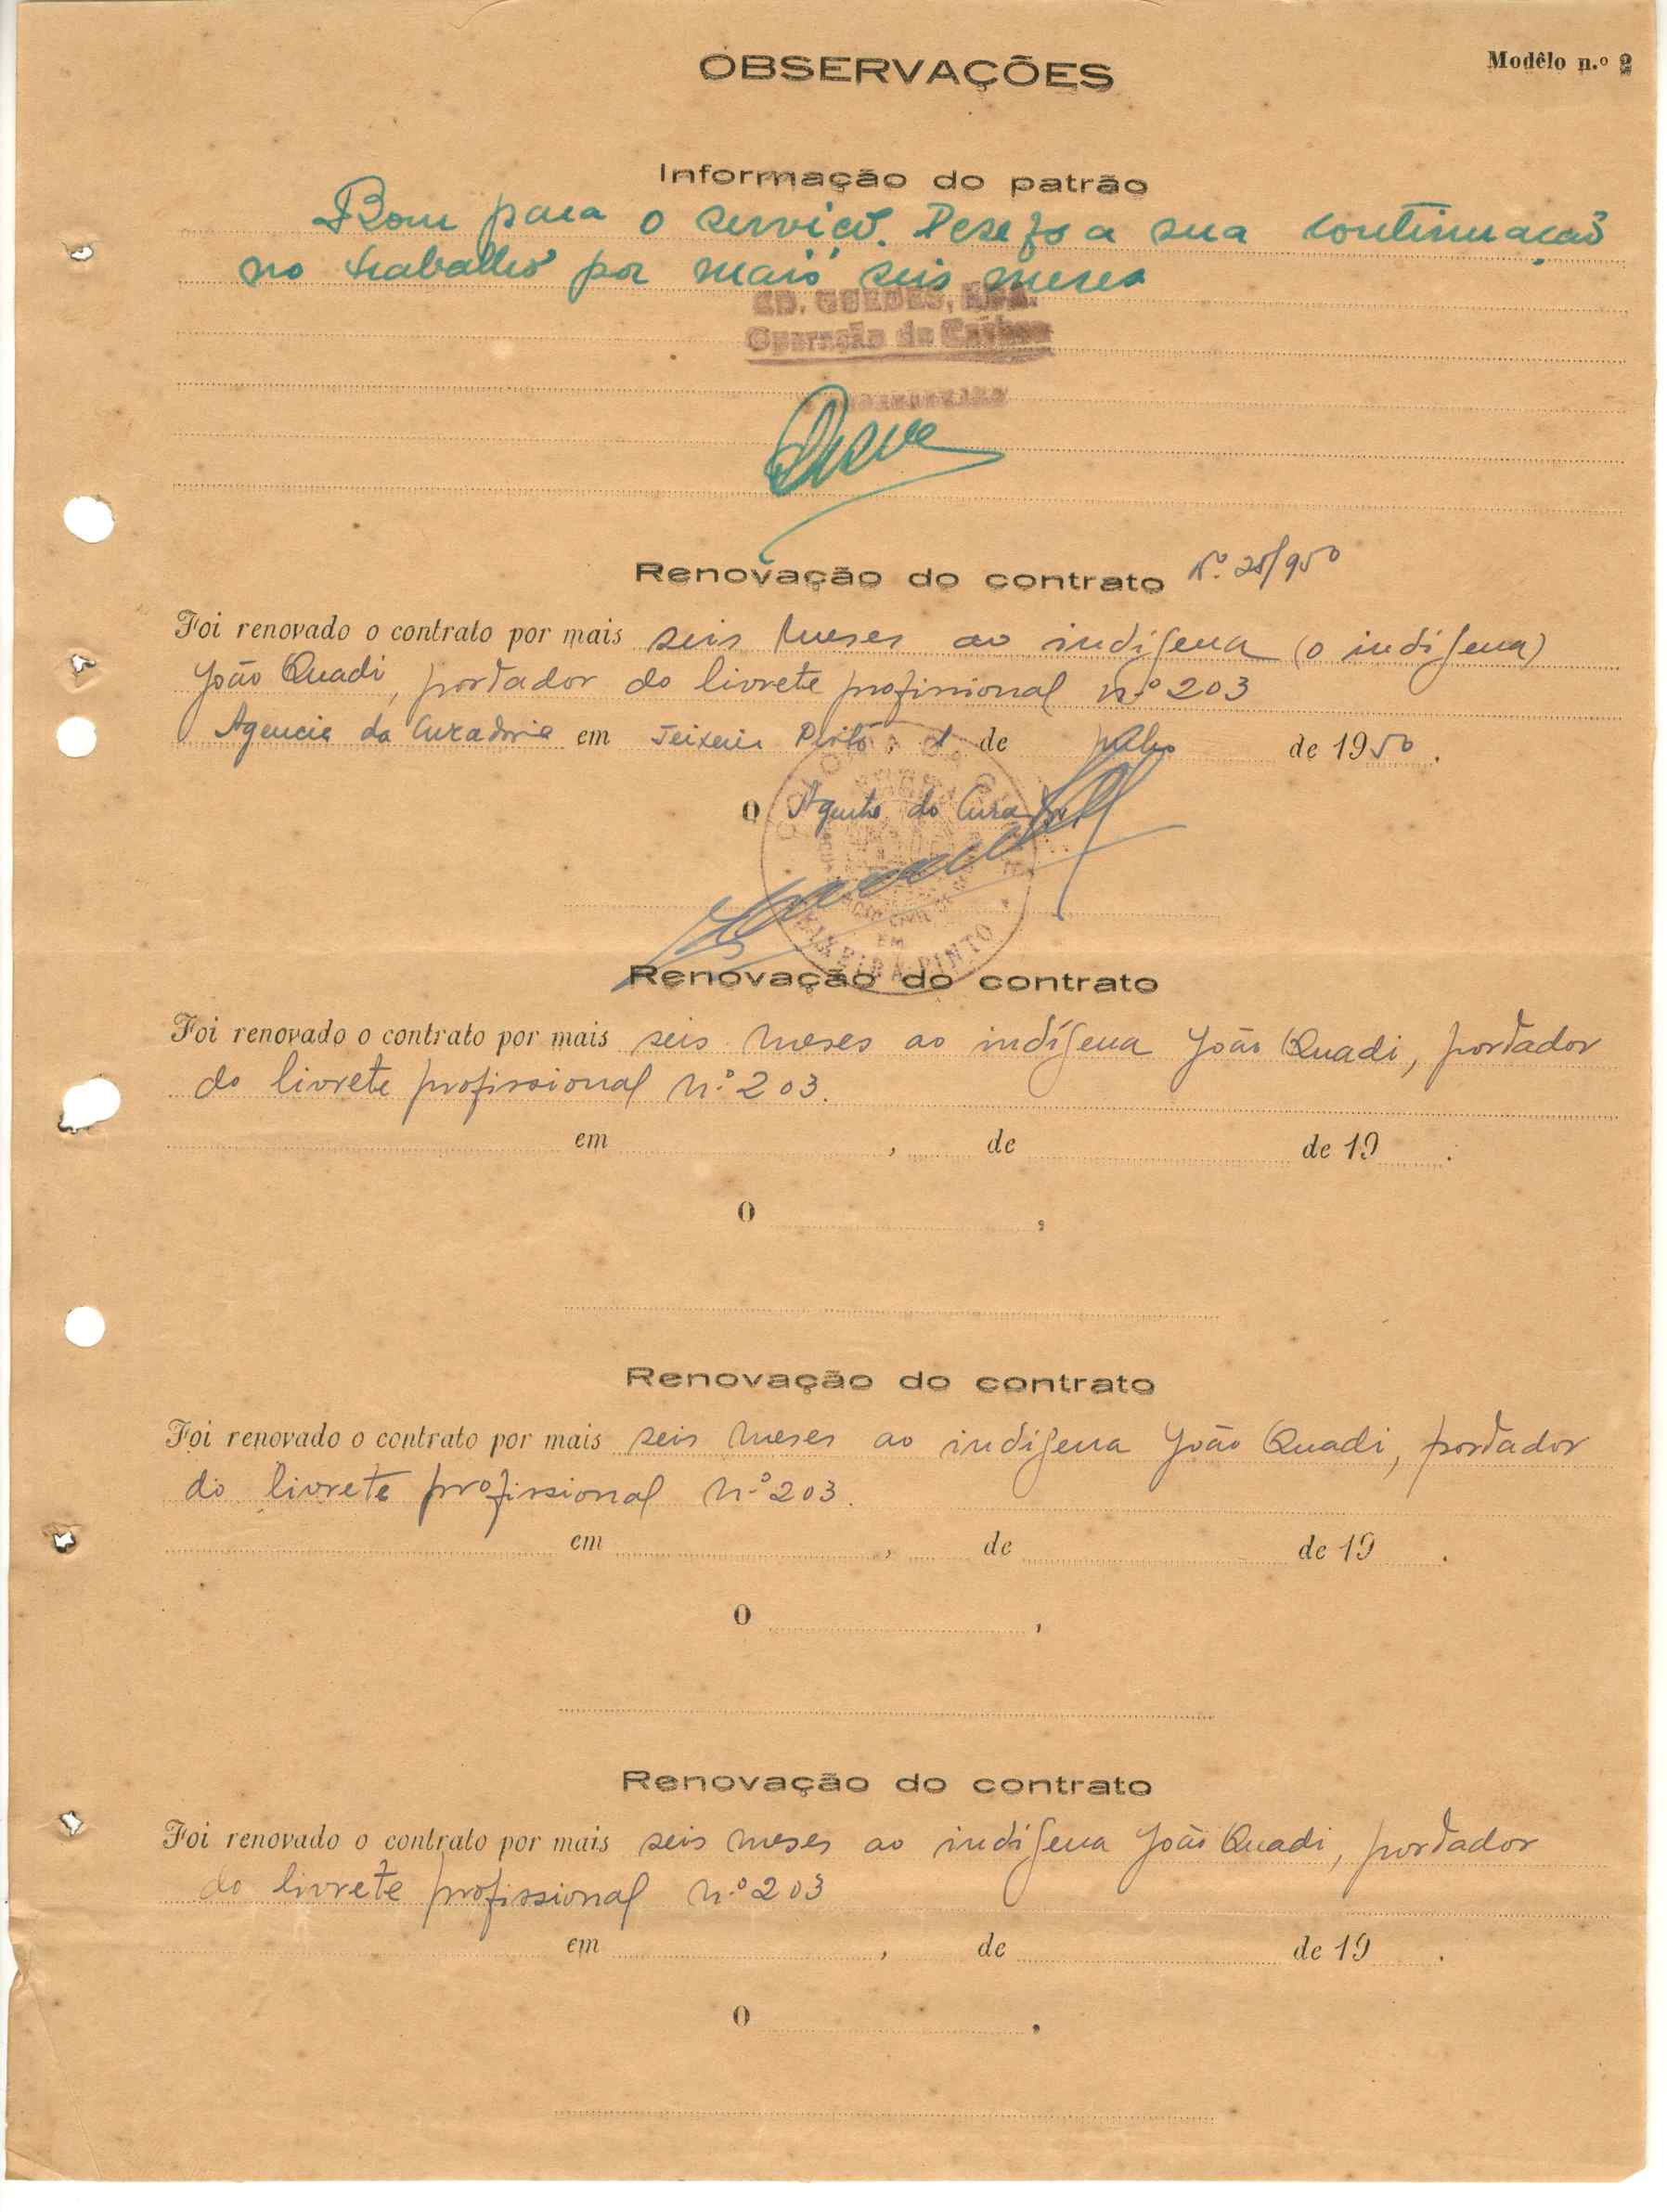 OBSERVAÇÕES
Modêlo n.º 2
Informação do patrão
Bom para o serviço. Desejo a sua continuação
no trabalho por mais seis meses
ED. GUEDES, LDA.
Operação de
Renovação do contrato N.º 28/950
Foi renovado o contrato por mais seis meses ao indígena (o indígena)
João Quadi, portador do livrete profissional n.º 203
Agencia da Curadoria em Teixeira Pinto, 1 de julho de 1950.
O Agente do Curador,
EM
TEIXEIRA PINTO
Renovação do contrato
Foi renovado o contrato por mais seis meses ao indígena João Quadi, portador
do livrete profissional n.º 203.
em , de de 19 .
O ,
Renovação do contrato
Foi renovado o contrato por mais seis meses ao indígena João Quadi, portador
do livrete profissional n.º 203.
em , de de 19 .
O ,
Renovação do contrato
Foi renovado o contrato por mais seis meses ao indígena João Quadi, portador
do livrete profissional n.º 203
em , de de 19 .
O ,